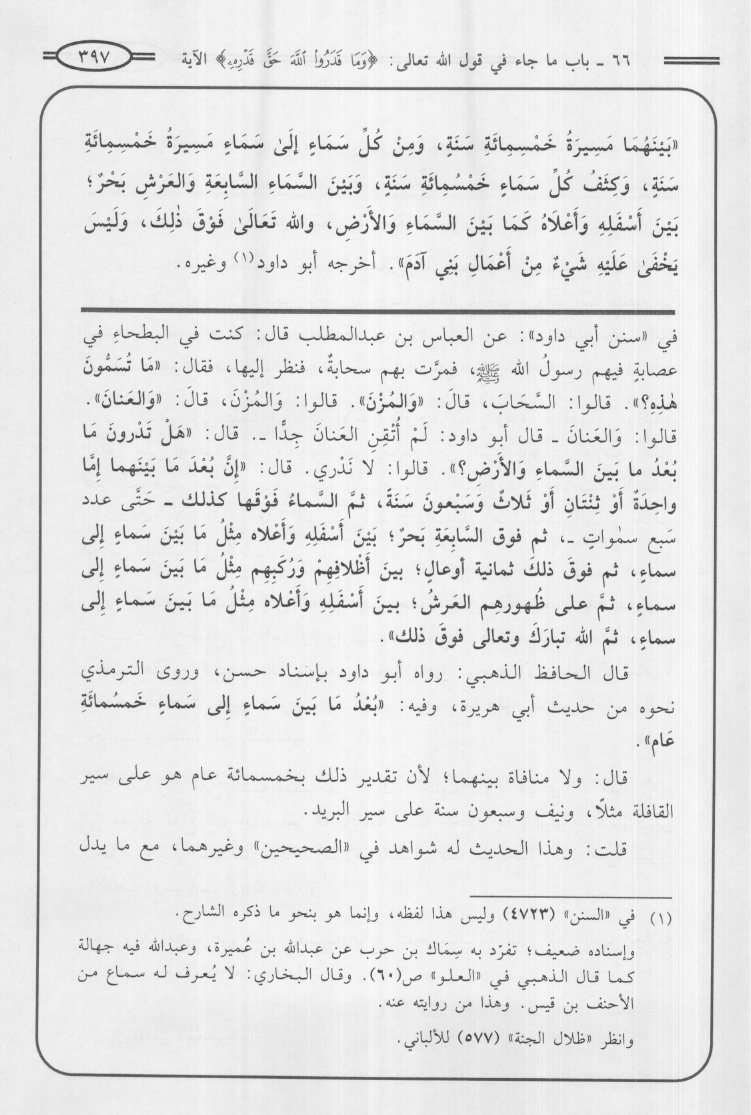 ٦٦ ـ باب ما جاء في قول الله تعالى: ﴿وَمَا قَدَرُوا۟ ٱللَّهَ حَقَّ قَدْرِهِۦ﴾ الآية
٣٩٧
«بَيْنَهُمَا مَسِيرَةُ خَمْسِمِائَةِ سَنَةٍ، وَمِنْ كُلِّ سَمَاءٍ إِلَىٰ سَمَاءٍ مَسِيرَةُ خَمْسِمِائَةِ
سَنَةٍ، وَكِثَفُ كُلِّ سَمَاءٍ خَمْسُمِائَةِ سَنَةٍ، وَبَيْنَ السَّمَاءِ السَّابِعَةِ وَالعَرْشِ بَحْرٌ؛
بَيْنَ أَسْفَلِهِ وَأَعْلَاهُ كَمَا بَيْنَ السَّمَاءِ وَالأَرْضِ، والله تَعَالَىٰ فَوْقَ ذٰلِكَ، وَلَيْسَ
يَخْفَىٰ عَلَيْهِ شَيْءٌ مِنْ أَعْمَالِ بَنِي آدَمَ». أخرجه أبو داود(١) وغيره.
في «سنن أبي داود»: عن العباس بن عبدالمطلب قال: كنت في البطحاءِ في
عصابةٍ فيهم رسولُ الله ﷺ، فمرَّت بهم سحابةٌ، فنظر إليها، فقال: «مَا تُسَمُّونَ
هٰذِهِ؟». قالوا: السَّحَابَ، قالَ: «وَالمُزْنَ». قالوا: وَالمُزْنَ، قالَ: «وَالعَنانَ».
قالوا: وَالعَنانَ ـ قال أبو داود: لَمْ أُتْقِنِ العَنانَ جِدًّا ـ. قال: «هَلْ تَدْرونَ مَا
بُعْدُ ما بَينَ السَّماءِ وَالأَرْضِ؟». قالوا: لا نَدْري. قال: «إِنَّ بُعْدَ مَا بَيْنَهما إِمَّا
واحِدَةٌ أَوْ ثِنْتَانِ أَوْ ثَلاثٌ وَسَبْعونَ سَنَةً، ثمَّ السَّماءُ فَوْقَها كذلك ـ حَتَّى عدد
سَبع سمٰواتٍ ـ، ثم فوق السَّابِعَةِ بَحرٌ؛ بَيْنَ أَسْفَلِهِ وَأَعْلاه مِثْلُ مَا بَيْنَ سَماءٍ إِلى
سماءٍ، ثم فوقَ ذلكَ ثمانية أوعالٍ؛ بينَ أَظْلافِهِمْ وَرُكَبِهِم مِثْلُ مَا بَينَ سَماءٍ إِلى
سماءٍ، ثمَّ على ظُهورِهِم العَرشُ؛ بينَ أَسْفَلِهِ وَأَعْلاه مِثْلُ مَا بَينَ سَماءٍ إِلى
سماءٍ، ثمَّ الله تبارَكَ وتعالى فوقَ ذلك».
قال الحافظ الذهبي: رواه أبو داود بإسناد حسن، وروى الترمذي
نحوه من حديث أبي هريرة، وفيه: «بُعْدُ مَا بَينَ سَماءٍ إِلى سَماءٍ خَمسُمائَةِ
عَام».
قال: ولا منافاة بينهما؛ لأن تقدير ذلك بخمسمائة عام هو على سير
القافلة مثلًا، ونيف وسبعون سنة على سير البريد.
قلت: وهذا الحديث له شواهد في «الصحيحين» وغيرهما، مع ما يدل
(١) في «السنن» (٤٧٢٣) وليس هذا لفظه، وإنما هو بنحو ما ذكره الشارح.
وإسناده ضعيف؛ تفرّد به سِمَاك بن حرب عن عبدالله بن عُميرة، وعبدالله فيه جهالة
كما قال الذهبي في «العلو» ص(٦٠). وقال البخاري: لا يُعرف له سماع من
الأحنف بن قيس. وهذا من روايته عنه.
وانظر «ظلال الجنة» (٥٧٧) للألباني.